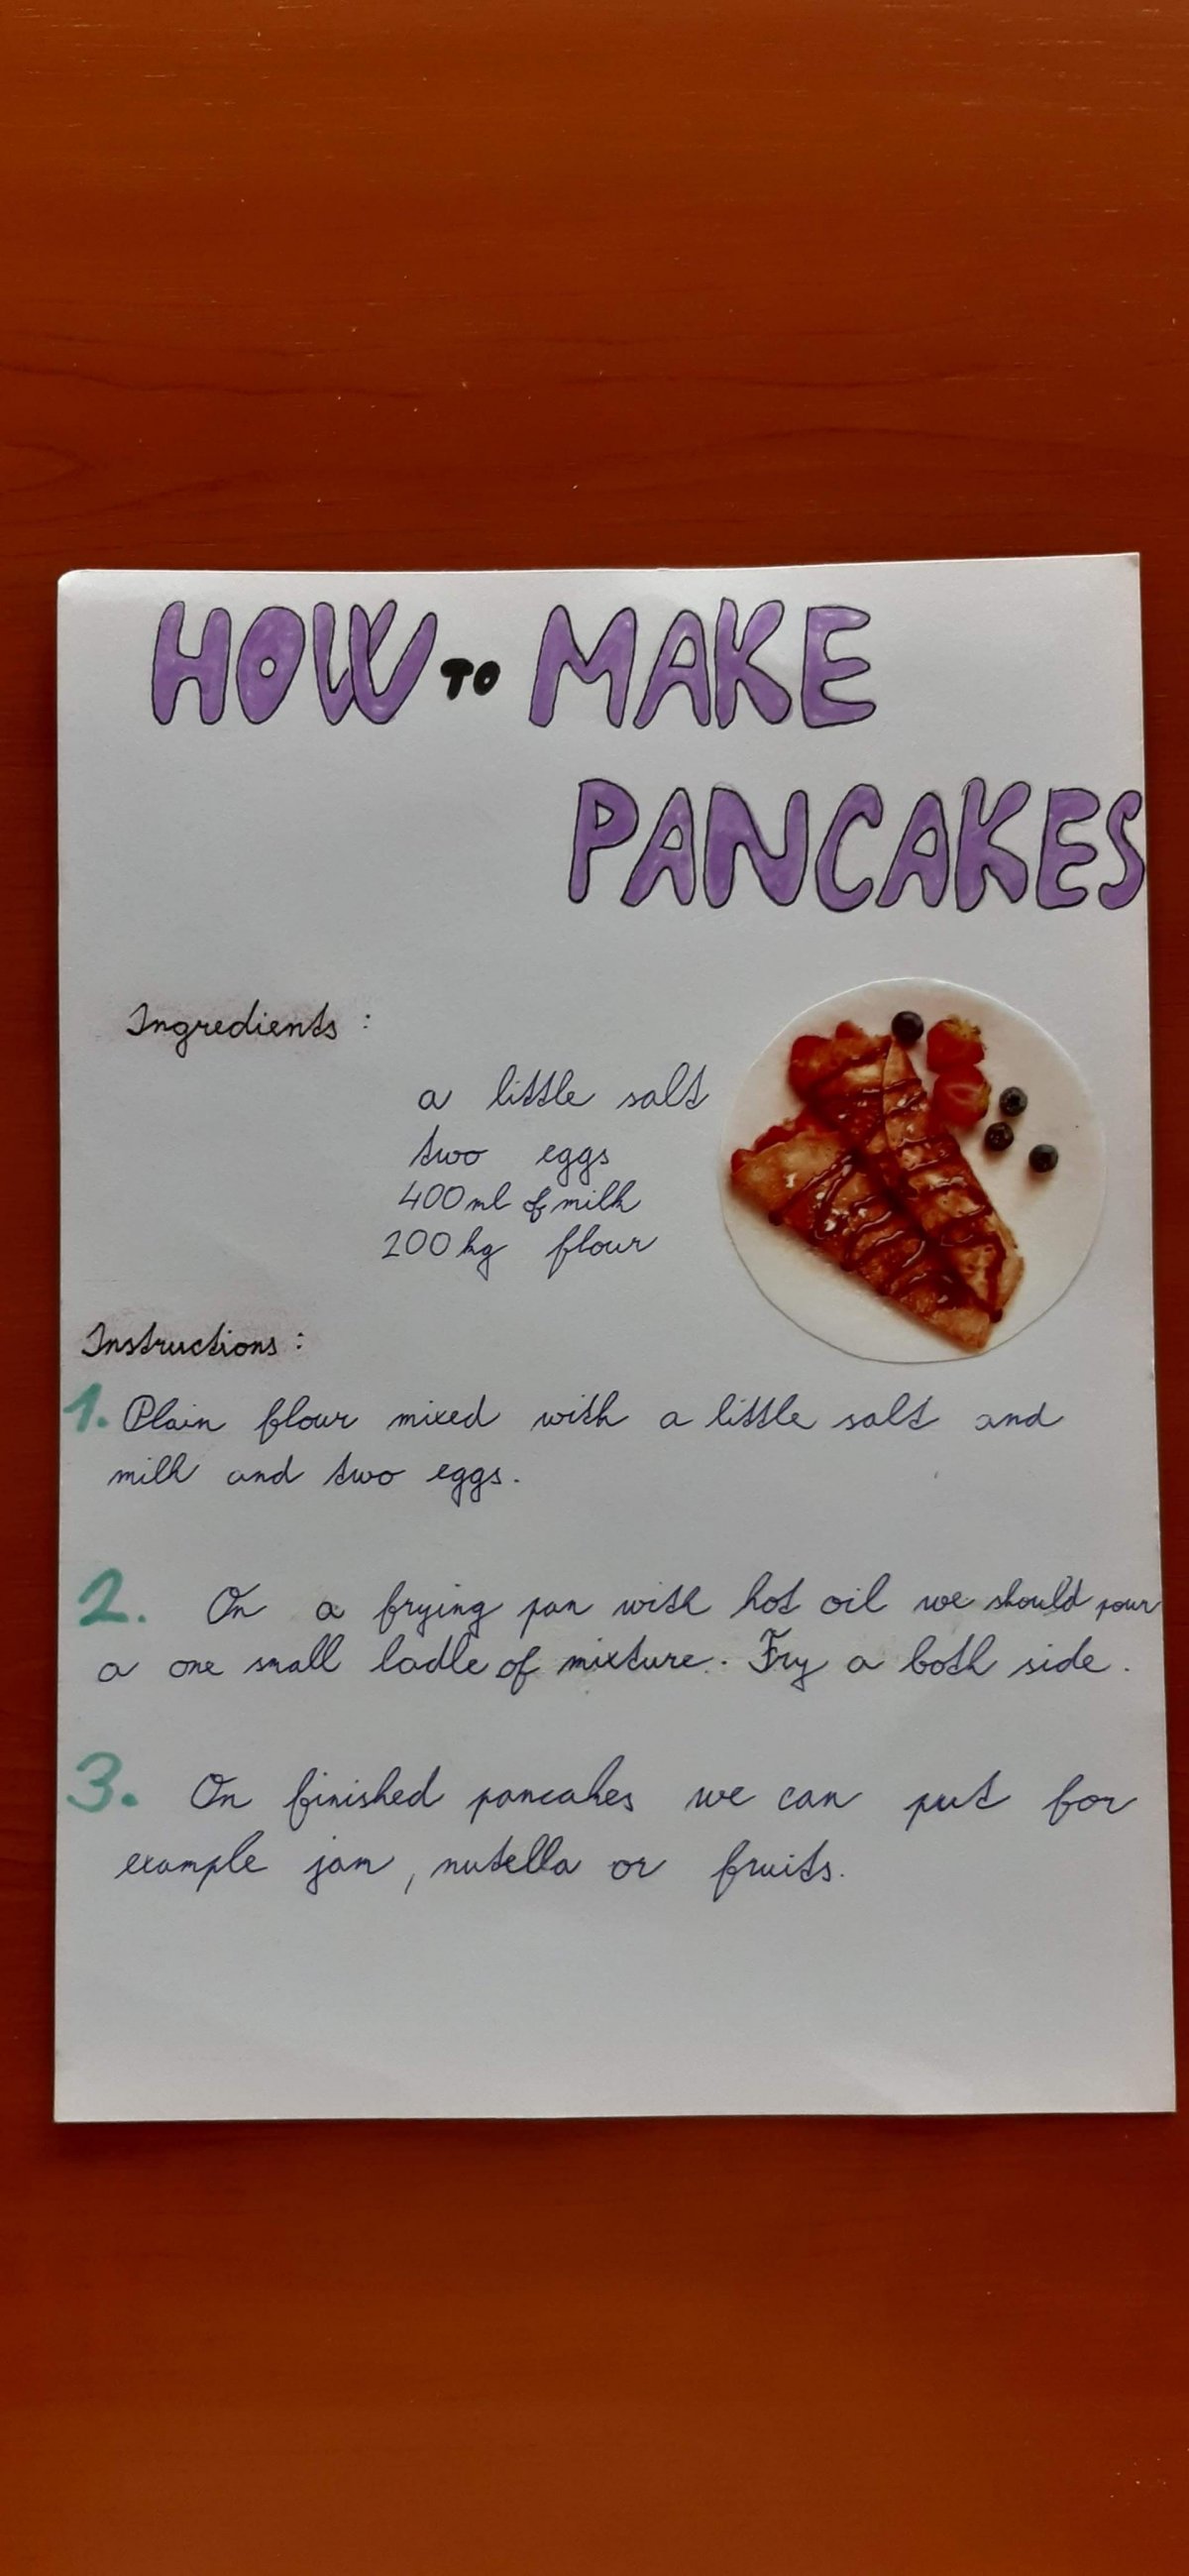 HOW TO MAKE
PANCAKES
Ingredients :
a little salt
two eggs
400 ml of milk
200 kg flour
Instructions :
1. Plain flour mixed with a little salt and
milk and two eggs.
2. On a frying pan with hot oil we should pour
a one small ladle of mixture. Fry a both side.
3. On finished pancakes we can put for
example jam, nutella or fruits.